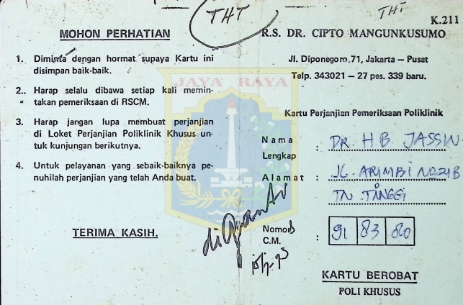 THT
THT
K.211
MOHON PERHATIAN
1. Diminta dengan hormat supaya Kartu ini
disimpan baik-baik.
2.. Harap selalu dibawa setiap kali memin-
takan pemeriksaan di RSCM.
3. Harap jangan lupa membuat perjanjian
di Loket Perjanjian Poliklinik Khusus un-
tuk kunjungan berikutnya.
4. Untuk pelayanan yang sebaik-baiknya pe-
nuhilah perjanjian yang telah Anda buat.
TERIMA KASIH.
R.S. DR. CIPTO MANGUNKUSUMO
Jl. Diponegoro,71, Jakarta – Pusat
Telp. 343021 – 27 pes. 339 baru.
JAYA RAYA
Kartu Perjanjian Pemeriksaan Poliklinik
Nama : DR. H B JASSIN
Lengkap
Alamat : JL. ARIMBI NO 21B
TN TINGGI
Nomor : 91 83 80
C.M.
KARTU BEROBAT
POLI KHUSUS